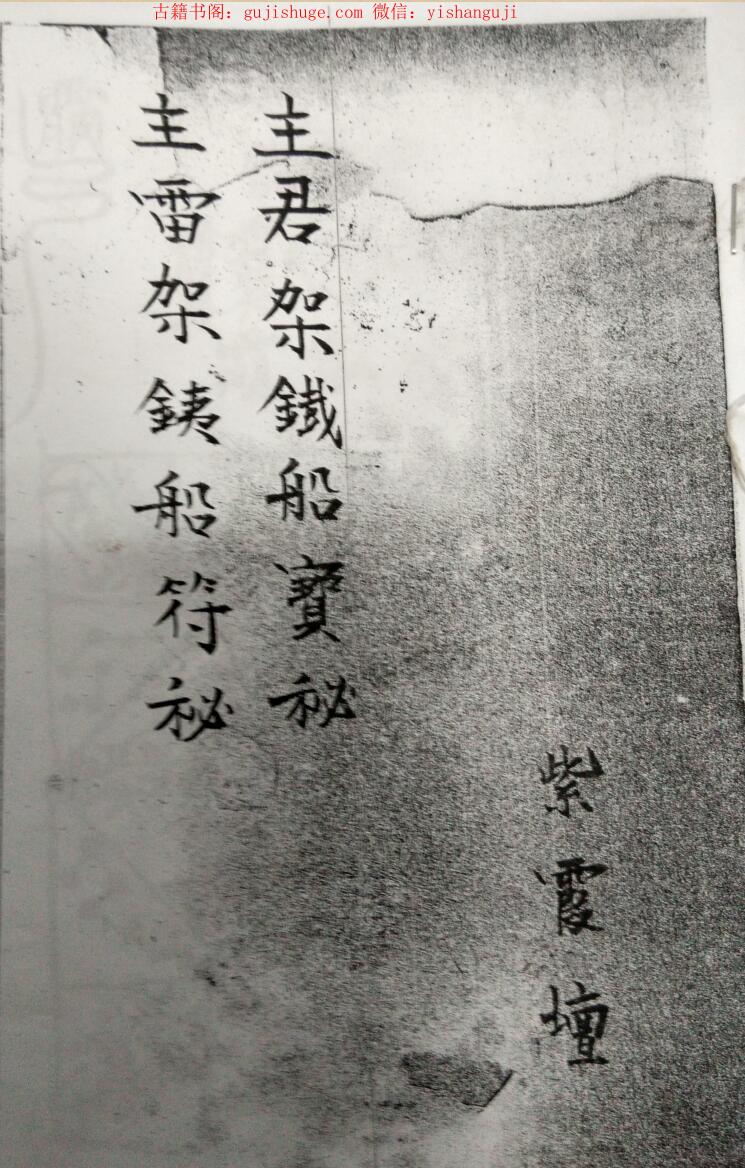 古籍书阁：gujishuge.com 微信：yishanguji
紫霞壇
主君架鐵船寶祕
主雷架銕船符祕